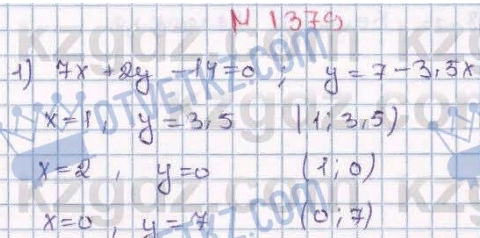 N 1379
1) 7x + 2y - 14 = 0 ; y = 7 - 3,5x
x = 1, y = 3,5 (1; 3,5)
x = 2, y = 0 (1; 0)
x = 0, y = 7 (0; 7)
OTVETKZ.COM
kzgdz.com